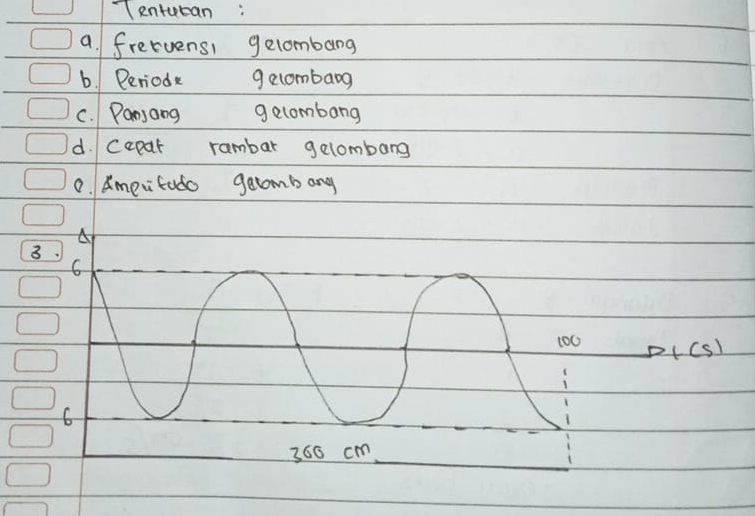 Tentukan :
a. frekuensi gelombang
b. Periode gelombang
c. Panjang gelombang
d. Cepat rambat gelombang
e. Amplitudo gelombang
3.
6
100
t (s)
6
360 cm